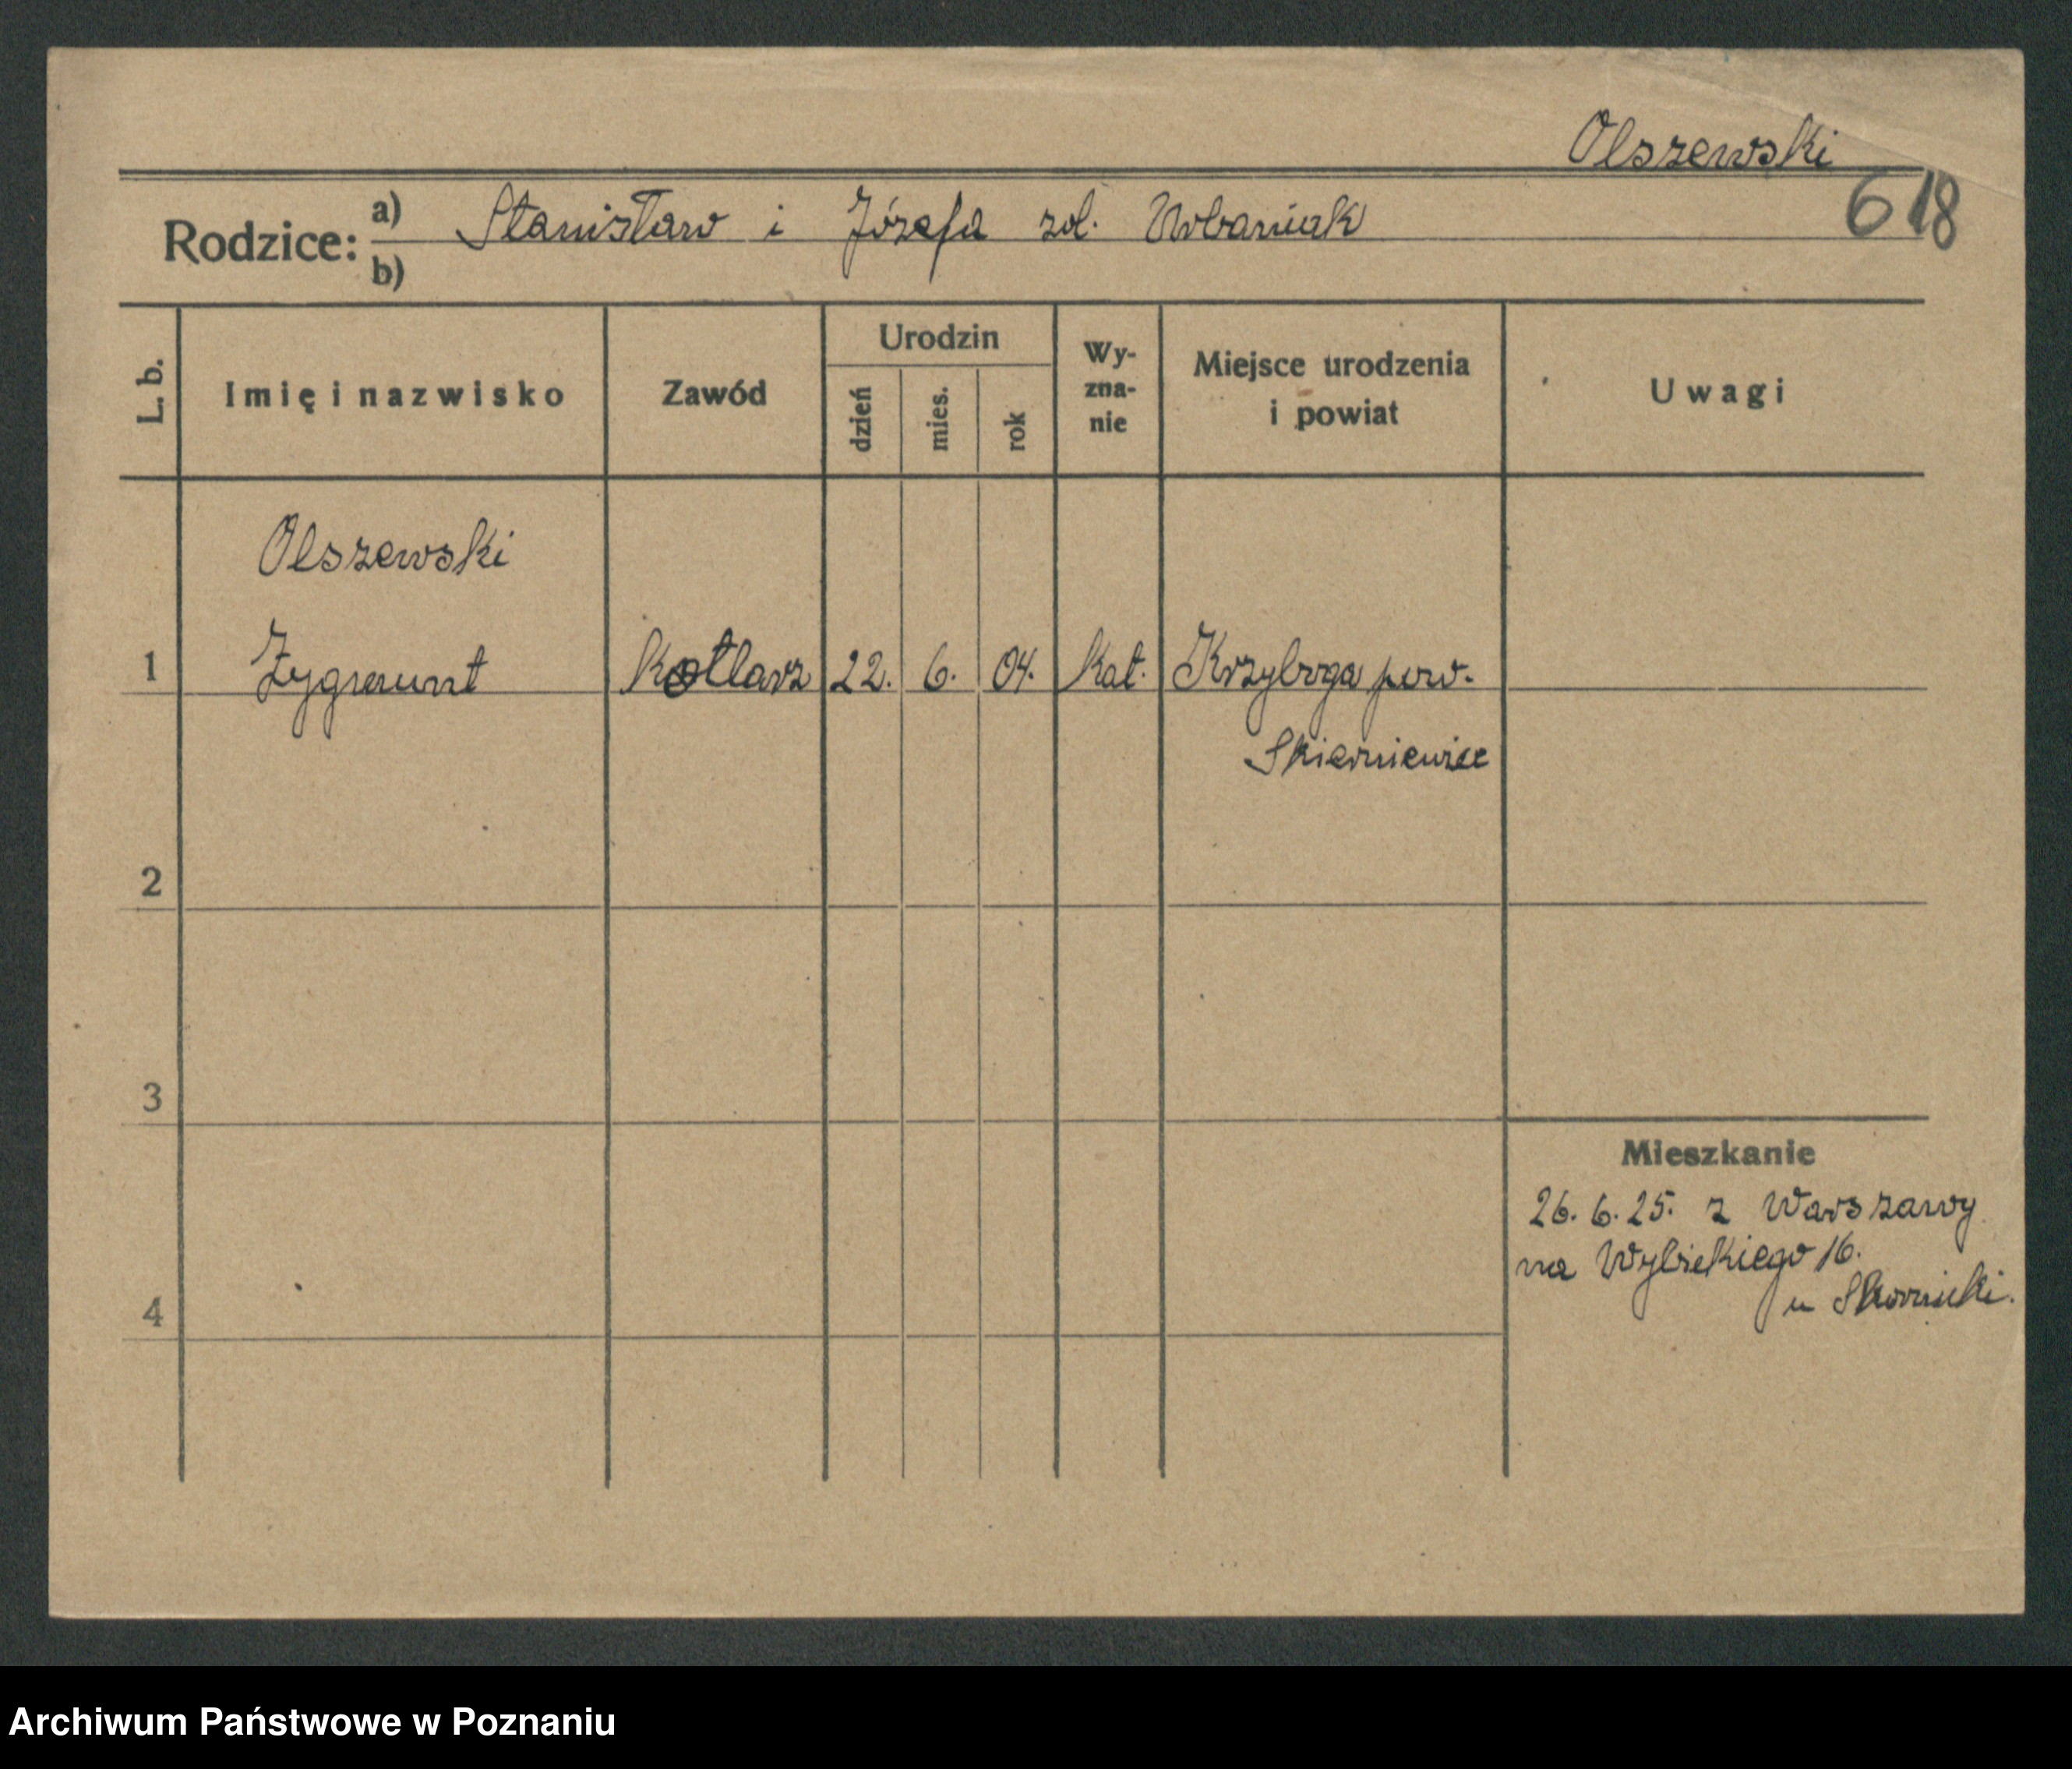 Olszewski
618
Rodzice: a) Stanisław i Józefa zd. Urbaniak
b)
L. b. Imię i nazwisko Zawód Urodzin dzień mies. rok Wy-zna-nie Miejsce urodzenia i powiat Uwagi
Olszewski
1 Zygmunt Kotlarz 22. 6. 04. Kat. pow.
Skierniewice
2
3
Mieszkanie
26.6.25. z Warszawy
na Wybickiego 16.
4
u
Archiwum Państwowe w Poznaniu